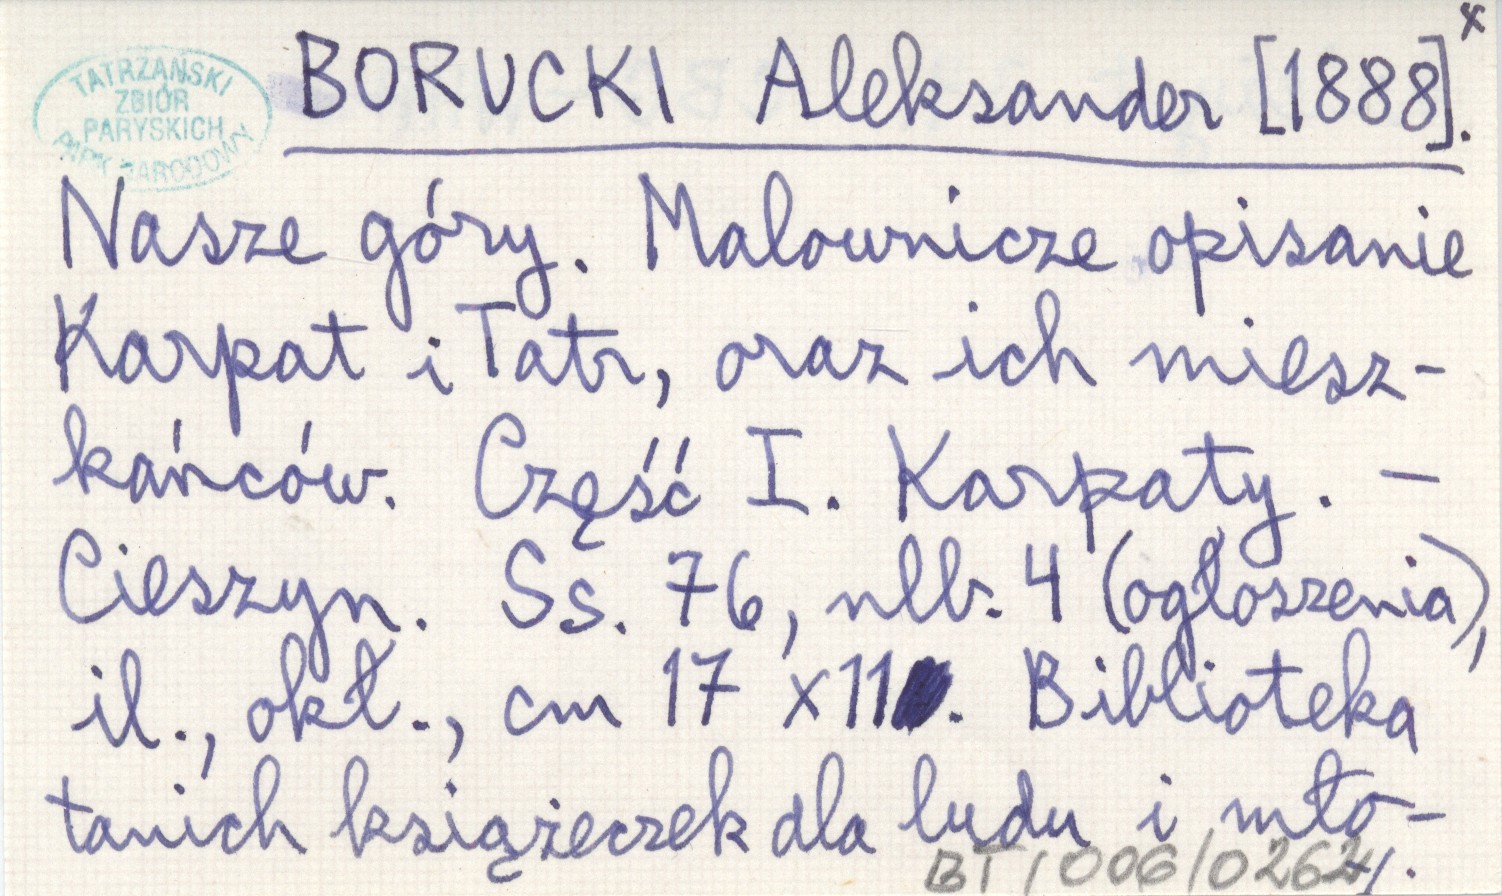 TATRZAŃSKI
ZBIÓR
PARYSKICH
PARK NARODOWY
BORUCKI Aleksander [1888].x
Nasze góry. Malownicze opisanie
Karpat i Tatr, oraz ich miesz-
kańców. Część I. Karpaty. —
Cieszyn. Ss. 76, nlb. 4 (ogłoszenia),
il., okł., cm 17 x 11 . Biblioteka
tanich książeczek dla ludu i mło-
BT/006/0262 ./.